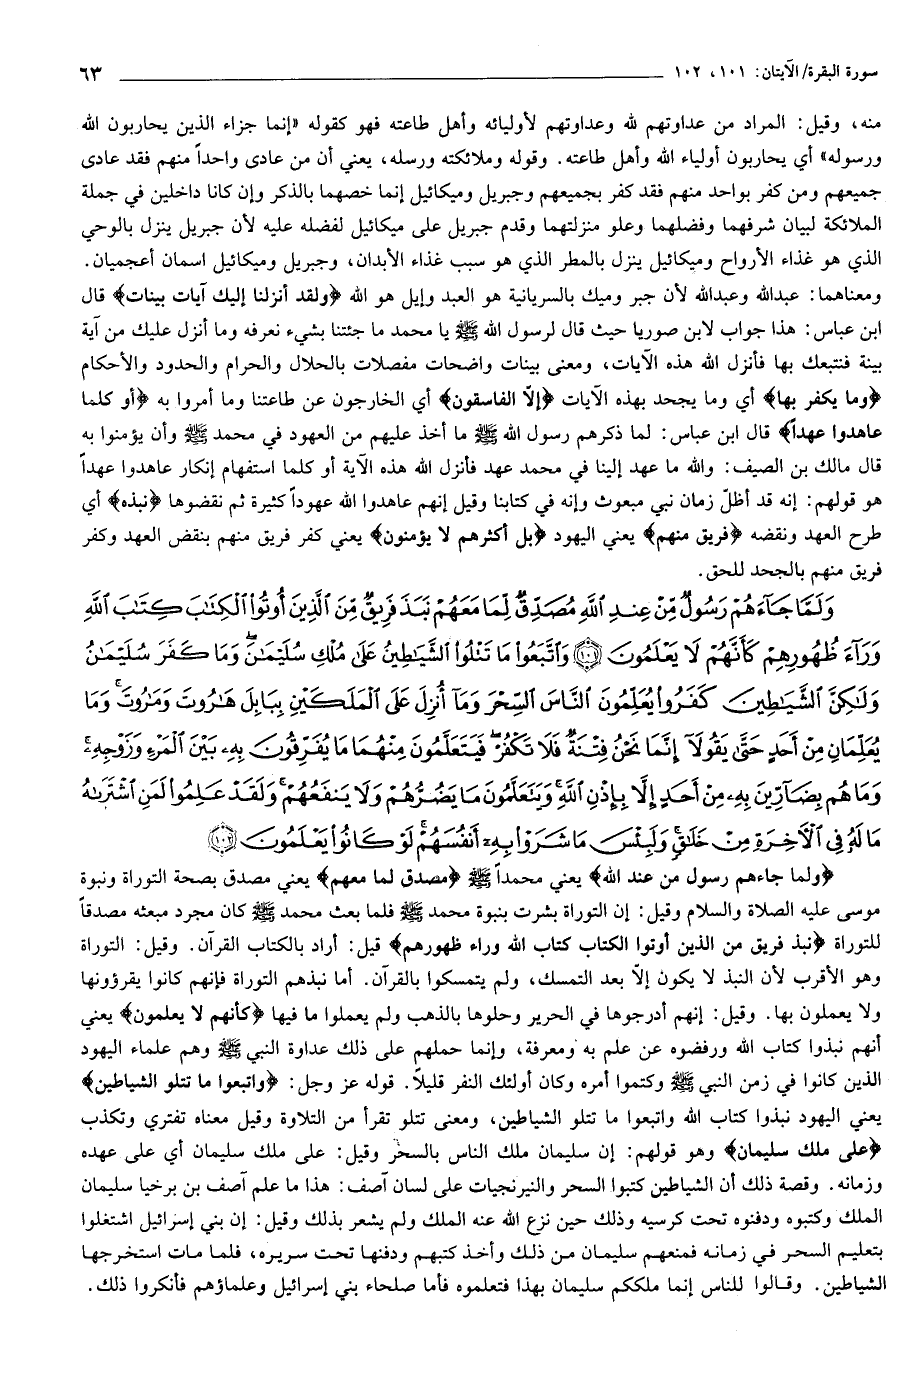 سورة البقرة/ الآيتان: ١٠١، ١٠٢ ٦٣
منه، وقيل: المراد من عداوتهم لله وعداوتهم لأوليائه وأهل طاعته فهو كقوله «إنما جزاء الذين يحاربون الله
ورسوله» أي يحاربون أولياء الله وأهل طاعته. وقوله وملائكته ورسله، يعني أن من عادى واحداً منهم فقد عادى
جميعهم ومن كفر بواحد منهم فقد كفر بجميعهم وجبريل وميكائيل إنما خصهما بالذكر وإن كانا داخلين في جملة
الملائكة لبيان شرفهما وفضلهما وعلو منزلتهما وقدم جبريل على ميكائيل لفضله عليه لأن جبريل ينزل بالوحي
الذي هو غذاء الأرواح وميكائيل ينزل بالمطر الذي هو سبب غذاء الأبدان، وجبريل وميكائيل اسمان أعجميان.
ومعناهما: عبدالله وعبدالله لأن جبر وميك بالسريانية هو العبد وإيل هو الله ﴿ولقد أنزلنا إليك آيات بينات﴾ قال
ابن عباس: هذا جواب لابن صوريا حيث قال لرسول الله ﷺ يا محمد ما جئتنا بشيء نعرفه وما أنزل عليك من آية
بينة فنتبعك بها فأنزل الله هذه الآيات، ومعنى بينات واضحات مفصلات بالحلال والحرام والحدود والأحكام
﴿وما يكفر بها﴾ أي وما يجحد بهذه الآيات ﴿إلّا الفاسقون﴾ أي الخارجون عن طاعتنا وما أمروا به ﴿أو كلما
عاهدوا عهداً﴾ قال ابن عباس: لما ذكرهم رسول الله ﷺ ما أخذ عليهم من العهود في محمد ﷺ وأن يؤمنوا به
قال مالك بن الصيف: والله ما عهد إلينا في محمد عهد فأنزل الله هذه الآية أو كلما استفهام إنكار عاهدوا عهداً
هو قولهم: إنه قد أظلّ زمان نبي مبعوث وإنه في كتابنا وقيل إنهم عاهدوا الله عهوداً كثيرة ثم نقضوها ﴿نبذه﴾ أي
طرح العهد ونقضه ﴿فريق منهم﴾ يعني اليهود ﴿بل أكثرهم لا يؤمنون﴾ يعني كفر فريق منهم بنقض العهد وكفر
فريق منهم بالجحد للحق.
وَلَمَّا جَآءَهُمْ رَسُولٌ مِّنْ عِندِ ٱللَّهِ مُصَدِّقٌ لِّمَا مَعَهُمْ نَبَذَ فَرِيقٌ مِّنَ ٱلَّذِينَ أُوتُوا۟ ٱلْكِتَٰبَ كِتَٰبَ ٱللَّهِ
وَرَآءَ ظُهُورِهِمْ كَأَنَّهُمْ لَا يَعْلَمُونَ ﴿١٠١﴾ وَٱتَّبَعُوا۟ مَا تَتْلُوا۟ ٱلشَّيَٰطِينُ عَلَىٰ مُلْكِ سُلَيْمَٰنَ ۖ وَمَا كَفَرَ سُلَيْمَٰنُ
وَلَٰكِنَّ ٱلشَّيَٰطِينَ كَفَرُوا۟ يُعَلِّمُونَ ٱلنَّاسَ ٱلسِّحْرَ وَمَآ أُنزِلَ عَلَى ٱلْمَلَكَيْنِ بِبَابِلَ هَٰرُوتَ وَمَٰرُوتَ ۚ وَمَا
يُعَلِّمَانِ مِنْ أَحَدٍ حَتَّىٰ يَقُولَآ إِنَّمَا نَحْنُ فِتْنَةٌ فَلَا تَكْفُرْ ۖ فَيَتَعَلَّمُونَ مِنْهُمَا مَا يُفَرِّقُونَ بِهِۦ بَيْنَ ٱلْمَرْءِ وَزَوْجِهِۦ ۚ
وَمَا هُم بِضَآرِّينَ بِهِۦ مِنْ أَحَدٍ إِلَّا بِإِذْنِ ٱللَّهِ ۚ وَيَتَعَلَّمُونَ مَا يَضُرُّهُمْ وَلَا يَنفَعُهُمْ ۚ وَلَقَدْ عَلِمُوا۟ لَمَنِ ٱشْتَرَىٰهُ
مَا لَهُۥ فِى ٱلْآخِرَةِ مِنْ خَلَٰقٍ ۚ وَلَبِئْسَ مَا شَرَوْا۟ بِهِۦٓ أَنفُسَهُمْ ۚ لَوْ كَانُوا۟ يَعْلَمُونَ ﴿١٠٢﴾
﴿ولما جاءهم رسول من عند الله﴾ يعني محمداً ﷺ ﴿مصدق لما معهم﴾ يعني مصدق بصحة التوراة ونبوة
موسى عليه الصلاة والسلام وقيل: إن التوراة بشرت بنبوة محمد ﷺ فلما بعث محمد ﷺ كان مجرد مبعثه مصدقاً
للتوراة ﴿نبذ فريق من الذين أوتوا الكتاب كتاب الله وراء ظهورهم﴾ قيل: أراد بالكتاب القرآن. وقيل: التوراة
وهو الأقرب لأن النبذ لا يكون إلّا بعد التمسك، ولم يتمسكوا بالقرآن. أما نبذهم التوراة فإنهم كانوا يقرؤونها
ولا يعملون بها. وقيل: إنهم أدرجوها في الحرير وحلوها بالذهب ولم يعملوا ما فيها ﴿كأنهم لا يعلمون﴾ يعني
أنهم نبذوا كتاب الله ورفضوه عن علم به ومعرفة، وإنما حملهم على ذلك عداوة النبي ﷺ وهم علماء اليهود
الذين كانوا في زمن النبي ﷺ وكتموا أمره وكان أولئك النفر قليلاً. قوله عز وجل: ﴿واتبعوا ما تتلو الشياطين﴾
يعني اليهود نبذوا كتاب الله واتبعوا ما تتلو الشياطين، ومعنى تتلو تقرأ من التلاوة وقيل معناه تفتري وتكذب
﴿على ملك سليمان﴾ وهو قولهم: إن سليمان ملك الناس بالسحر وقيل: على ملك سليمان أي على عهده
وزمانه. وقصة ذلك أن الشياطين كتبوا السحر والنيرنجيات على لسان آصف: هذا ما علم آصف بن برخيا سليمان
الملك وكتبوه ودفنوه تحت كرسيه وذلك حين نزع الله عنه الملك ولم يشعر بذلك وقيل: إن بني إسرائيل اشتغلوا
بتعليم السحر في زمانه فمنعهم سليمان من ذلك وأخذ كتبهم ودفنها تحت سريره، فلما مات استخرجها
الشياطين. وقالوا للناس إنما ملككم سليمان بهذا فتعلموه فأما صلحاء بني إسرائيل وعلماؤهم فأنكروا ذلك.